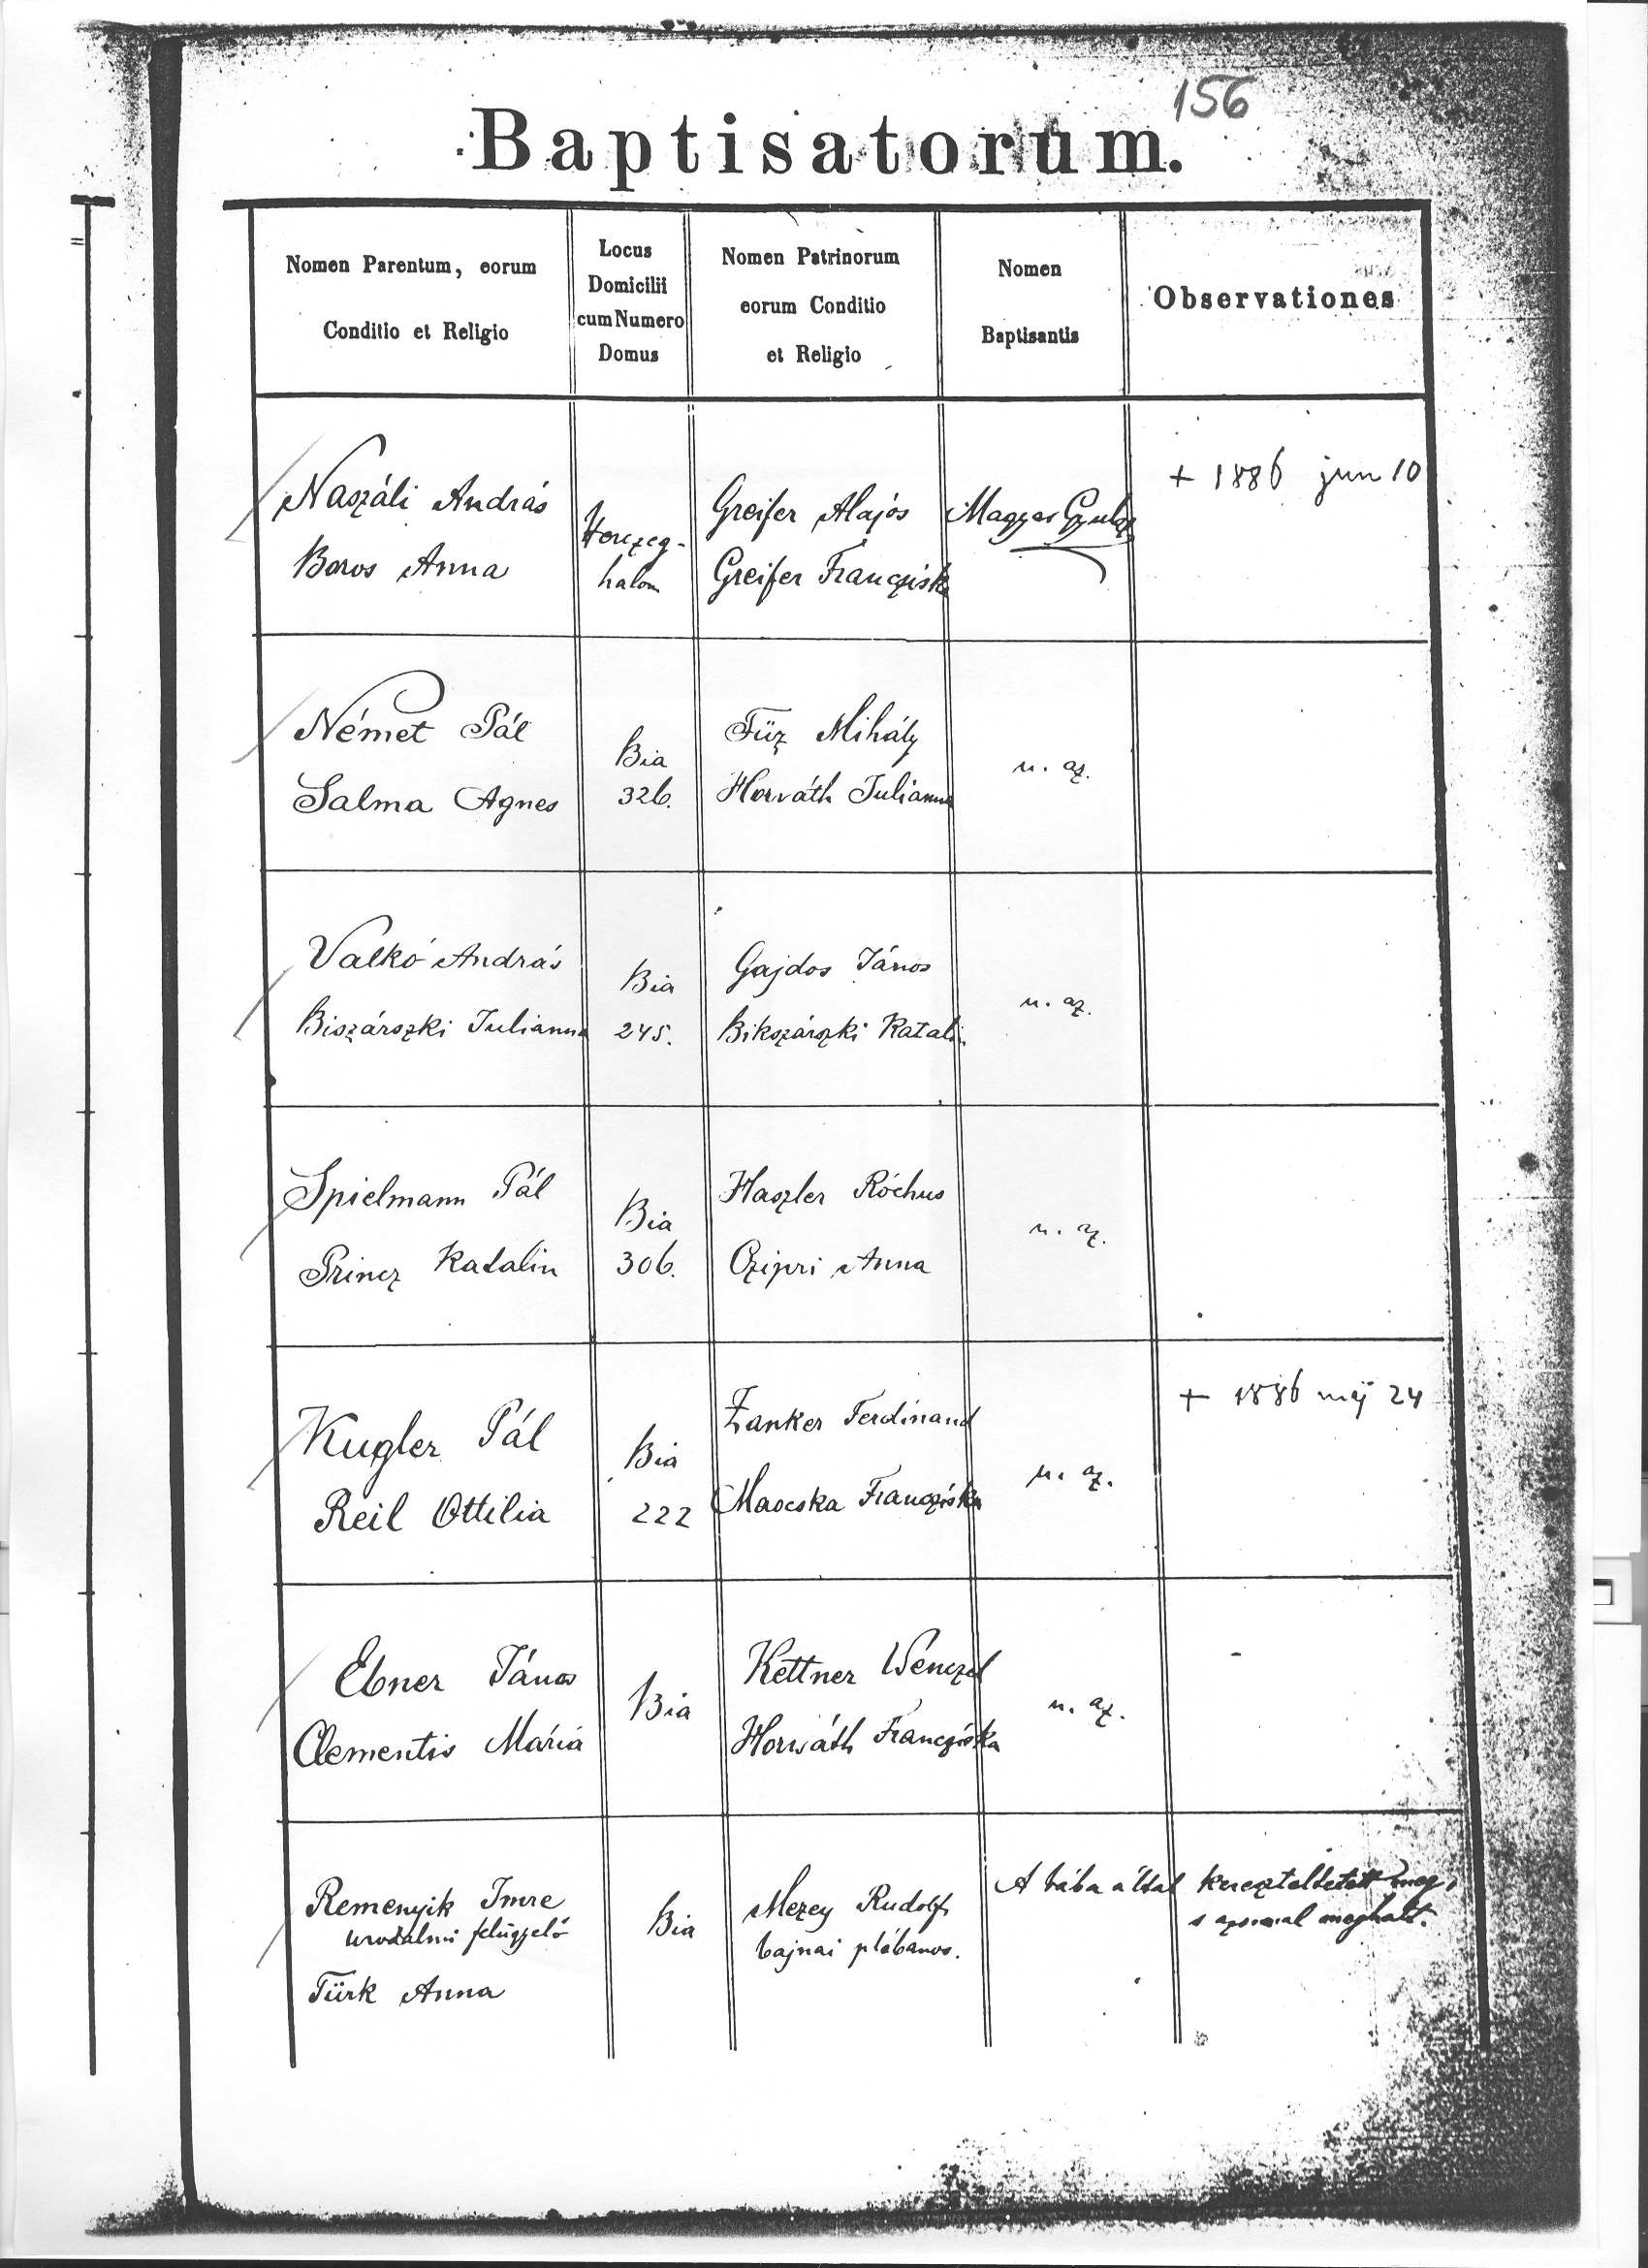 156
Baptisatorum.
Nomen Parentum, eorum
Conditio et Religio
Locus
Domicilii
cum Numero
Domus
Nomen Patrinorum
eorum Conditio
et Religio
Nomen
Baptisantis
Observationes
Naszáli András
Boros Anna
Herczeg-
halom
Greifer Alajos
Greifer Francziska
Magyar Gyula
+ 1886 jun 10
Német Pál
Salma Agnes
Bia
326.
Füz Mihály
Horváth Julianna
u. az.
Valkó András
Biszárszki Julianna
Bia
245.
Gajdos János
Bikszárszki Katalin
u. az.
Spielmann Pál
Princz Katalin
Bia
306.
Haszler Róchus
Czipri Anna
u. az.
Kugler Pál
Reil Ottilia
Bia
222
Zanker Ferdinand
Macska Francziska
u. az.
+ 1886 máj 24
Ebner János
Clementis Mária
Bia
Kettner Wenczel
Horváth Francziska
u. az.
Remenyik Imre
urodalmi felügyelő
Türk Anna
Bia
Mezey Rudolf
bajnai plébános.
A bába által kereszteltetett meg,
s azonnal meghalt.